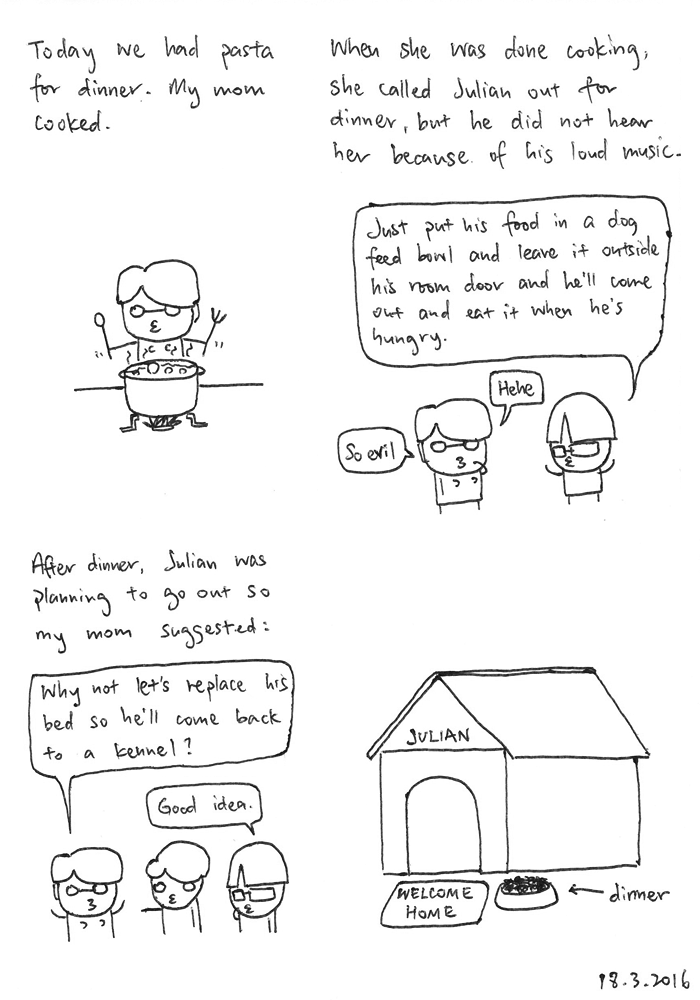 Today we had pasta
for dinner. My mom
cooked.
When she was done cooking,
she called Julian out for
dinner, but he did not hear
her because of his loud music.
Just put his food in a dog
feed bowl and leave it outside
his room door and he'll come
out and eat it when he's
hungry.
Hehe
So evil
After dinner, Julian was
planning to go out so
my mom suggested:
Why not let's replace his
bed so he'll come back
to a kennel?
Good idea.
JULIAN
WELCOME
HOME
dinner
18.3.2016